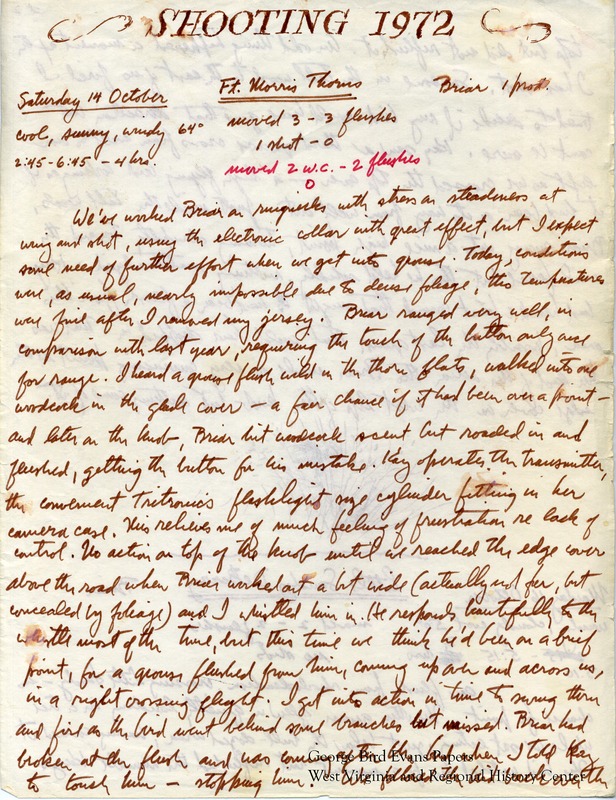 SHOOTING 1972
Saturday 14 October
Ft. Morris Thorns
Briar 1 prod.
cool, sunny, windy 64°
2:45-6:45 - 4 hrs.
moved 3 - 3 flushes
1 shot - 0
moved 2 w.c. - 2 flushes
0
We've worked Briar on ringnecks with stress on steadiness at
wing and shot, using the electronic collar with great effect, but I expect
some need of further effort when we get into grouse. Today, conditions
were, as usual, nearly impossible due to dense foliage, tho temperatures
were fine after I removed my jersey. Briar ranged very well, in
comparison with last year, requiring the touch of the button only once
for range. I heard a grouse flush wild in the thorn flats, walked into one
woodcock in the glade cover — a fair chance if it had been over a point —
and later on the knob, Briar hit woodcock scent but roaded in and
flushed, getting the button for his mistake. Kay operates the transmitter,
the convenient Tritronics flashlight size cylinder fitting in her
camera case. This relieves me of much feeling of frustration re lack of
control. No action on top of the knob until we reached the edge cover
above the road when Briar worked out a bit wide (actually not far, but
concealed by foliage) and I whistled him in. He responds beautifully to the
whistle most of the time, but this time we think he'd been on a brief
point, for a grouse flushed from him, coming up over and across us,
in a right crossing flight. I got into action in time to swing thru
and fire as the bird went behind some branches but missed. Briar had
broken at the flush and was when I told Kay
to touch him — stopping him
George Bird Evans Papers
West Virginia and Regional History Center